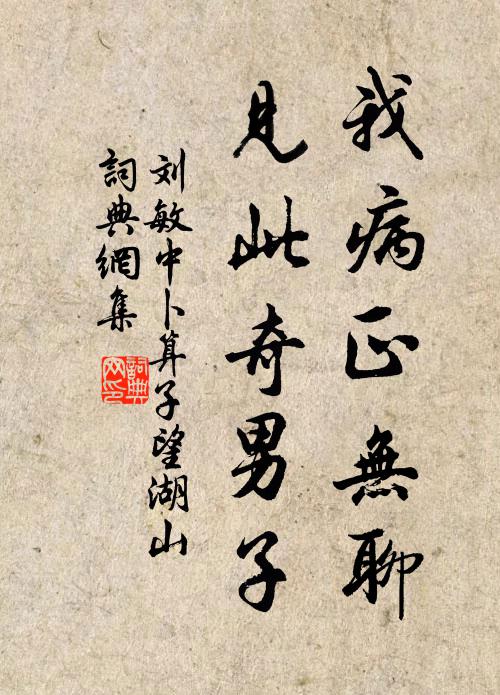 我病正無聊
見此奇男子
刘敏中卜算子望湖山
詞典網集
詞典網印